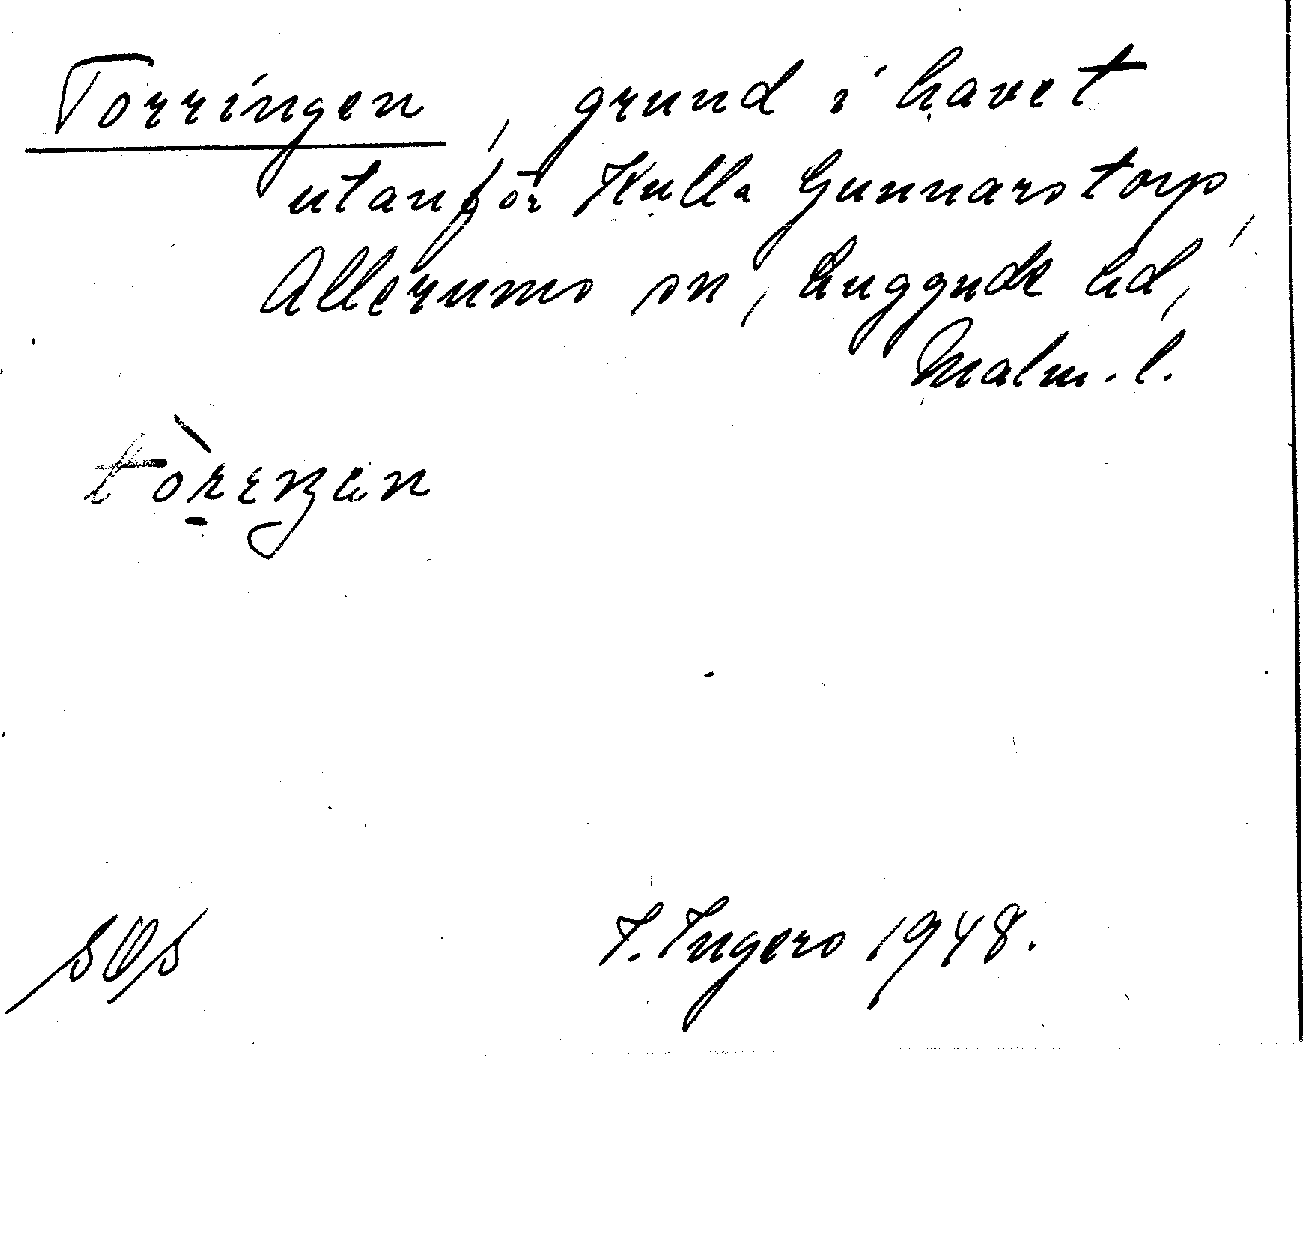 Torringen, grund i havet
utanför Kulla Gunnarstorp,
Allerums sn, Luggude hd,
Malm. l.
SOS I. Ingers 1948.